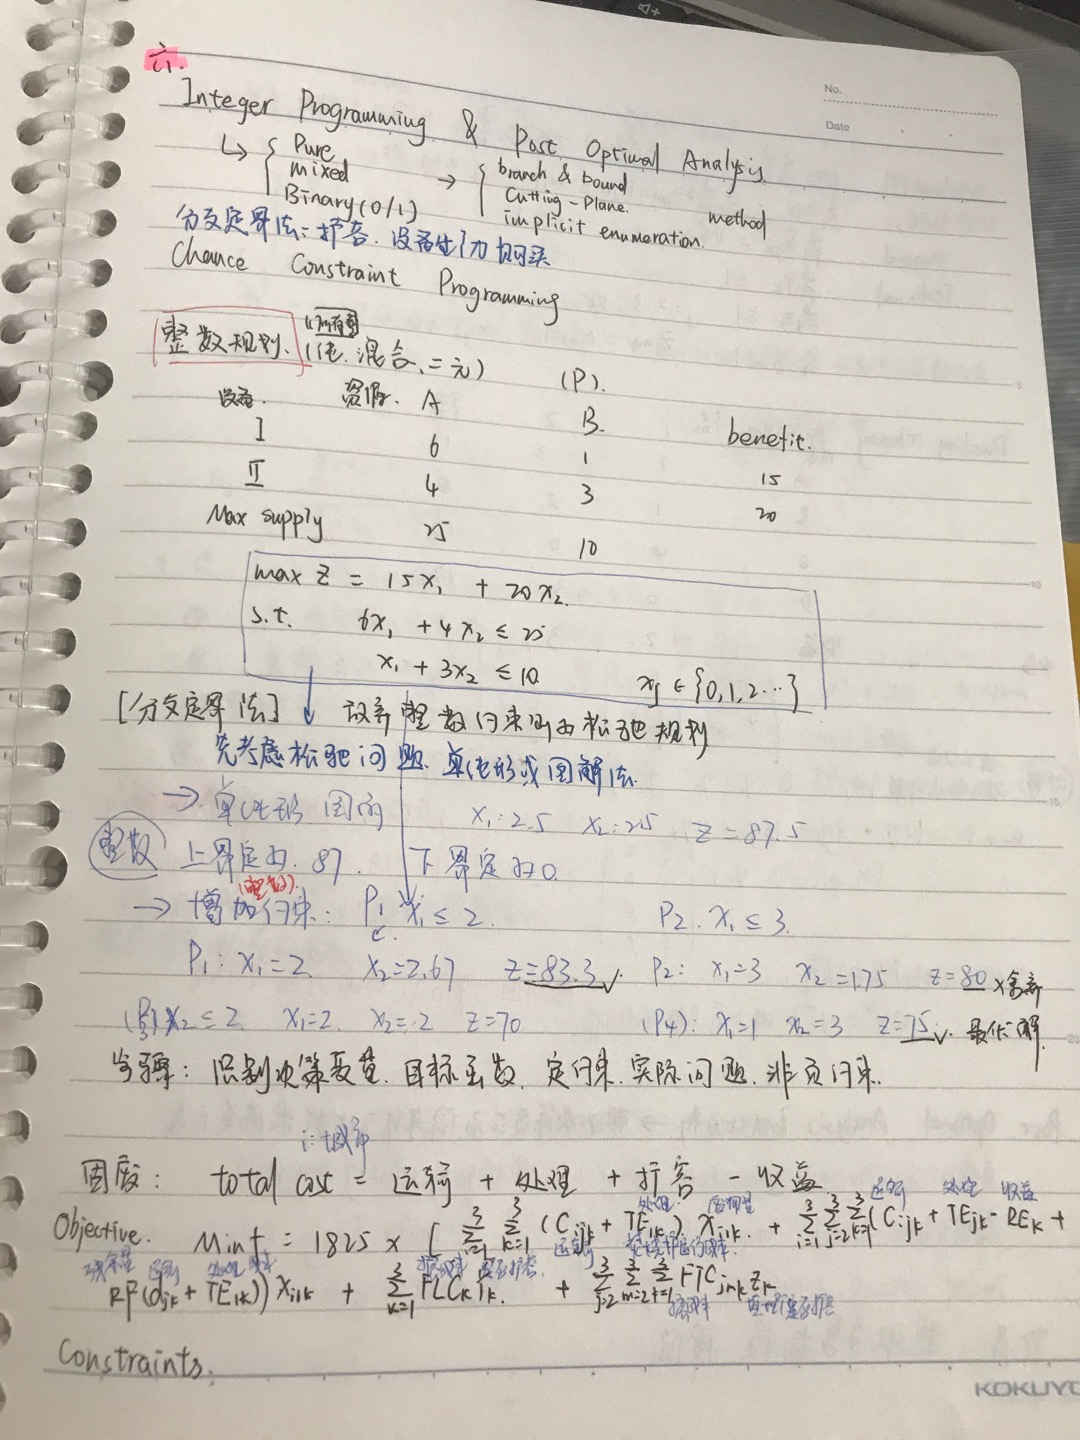 六.
No.
Date
Integer Programming & Post Optimal Analysis.
↳ { Pure mixed Binary (0/1) → { branch & bound Cutting-Plane. implicit enumeration. method
分支定界法: 扩容. 设备生产力 购买
Chance Constraint Programming
整数规划. (纯. 混合, 二元) (P).
设备. 资源. A B. benefit.
I 6 1 15
II 4 3 20
Max supply 25 10
max Z = 15x₁ + 20x₂.
s.t. 6x₁ + 4x₂ ≤ 25
x₁ + 3x₂ ≤ 10. xj ∈ {0,1,2…}
[分支定界法] ↓ 放弃整数约束即为松弛规划
先考虑松弛问题. 单纯形或图解法.
→ 单纯形 图解 x₁=2.5 x₂=2.5 Z=87.5
整数 上界定为. 87. 下界定为0.
(整数).
→ 增加约束: P₁ x₁ ≤ 2. P2. x₁ ≤ 3.
P₁: x₁=2. x₂=2.67 Z=83.3 ✓ P₂: x₁=3 x₂=1.75 Z=80 × 舍弃
(P3) x₂ ≤ 2. x₁=2. x₂=2 Z=70 (P4): x₁=1 x₂=3 Z=75 ✓. 最优解.
步骤: 识别决策变量. 目标函数. 定约束. 实际问题. 非负约束.
i: 城市
固废: total cost = 运输 + 处理 + 扩容 - 收益
处理. 运输 处理 收益
Objective. Min f = 1825 × [ ∑ ∑ (Cijk + TEik) Xijk + ∑∑∑ (Cijk + TEjk - REk +
运输 处理
RF(djk + TEik)) Xijk + ∑ FLCk Yk. + ∑∑∑ FTCjmk Zk
Constraints.
KOKUYO